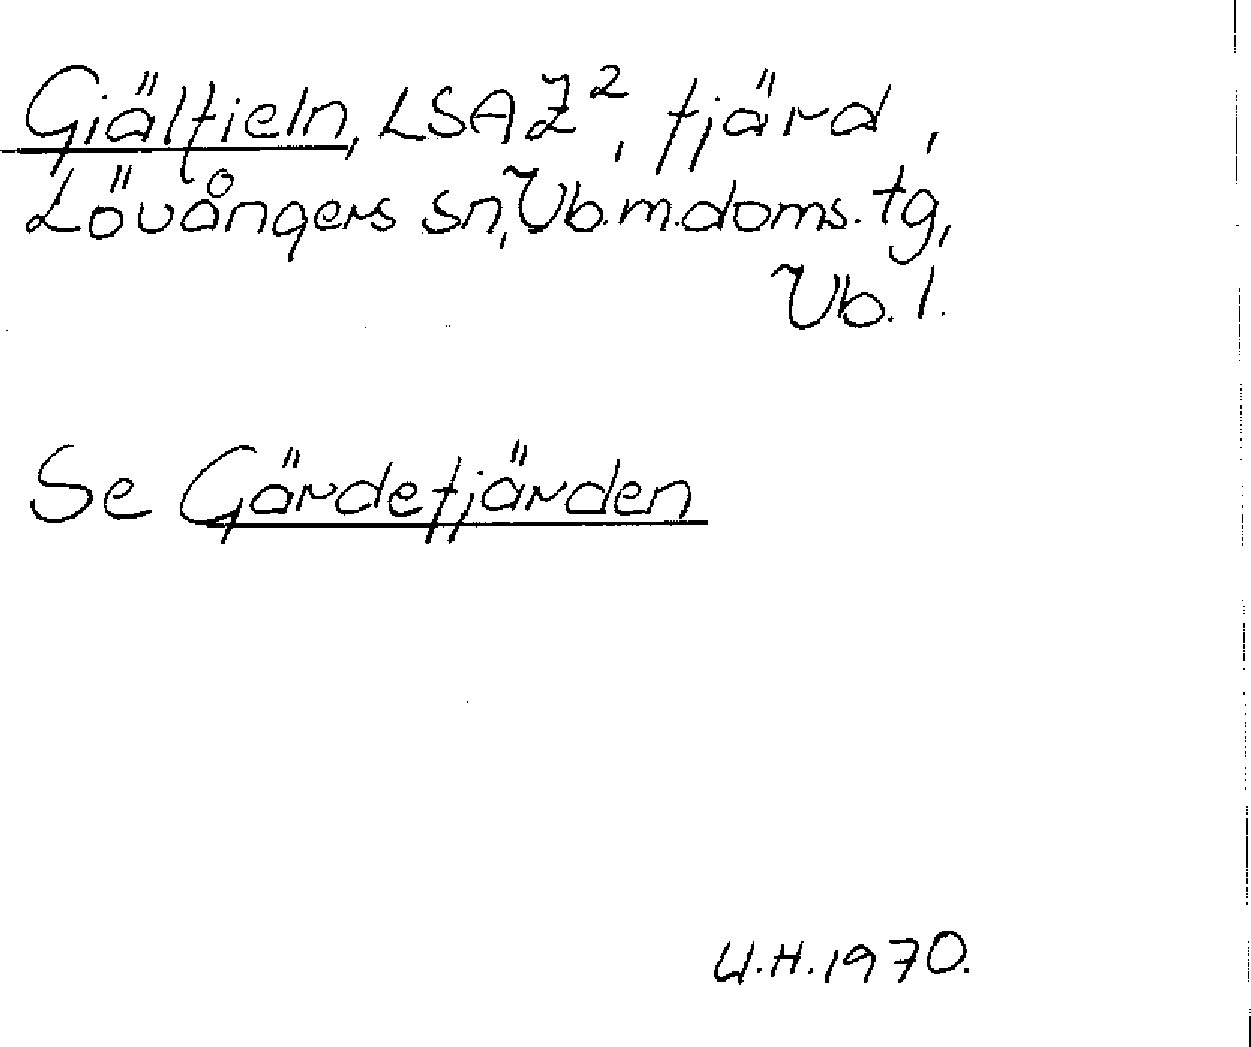 Giälfieln, LSA Z², fjärd,
Lövångers sn, Vb.m.doms.tg,
Vb.l.
Se Gärdefjärden
U.H.1970.